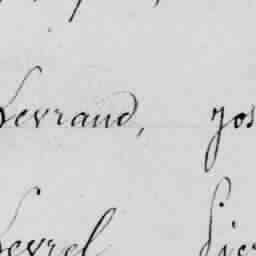 Levrand, Jos
Levrel Pier